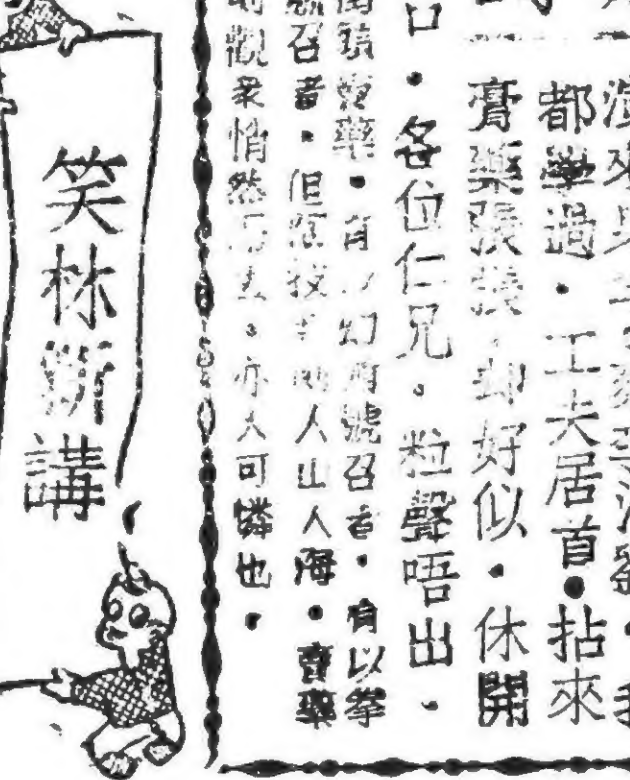 演來
都學過．工夫居首●拈來
膏藥張張．却好似．休開
口．各位仁兄。粒聲唔出．
賣藥．有以幻術號召者．有以拳
號召者．但 人山人海．賣藥
觀衆悄然而去。亦大可憐也．
笑林新講